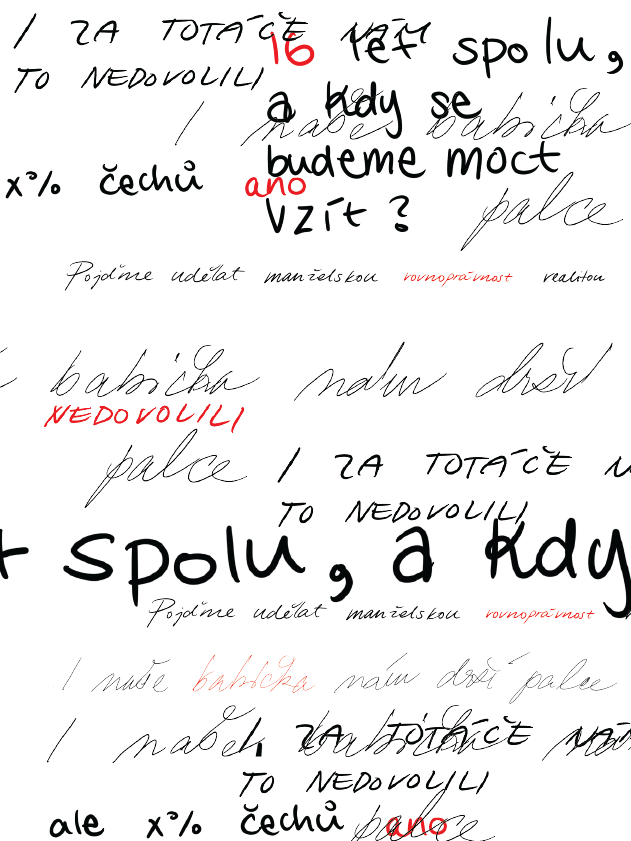 I ZA TOTÁČE NÁM
TO NEDOVOLILI
16 let spolu,
a kdy se
budeme moct
vzít?
I naše babička
palce
x% čechů ano
Pojďme udělat manželskou rovnoprávnost realitou
babička nám drží
NEDOVOLILI
palce
I ZA TOTÁČE
TO NEDOVOLILI
spolu, a kdy
Pojďme udělat manželskou rovnoprávnost
I naše babička nám drží palce
I naše babička
ZA TOTÁČE NÁM
TO NEDOVOLILI
palce
ale x% čechů ano